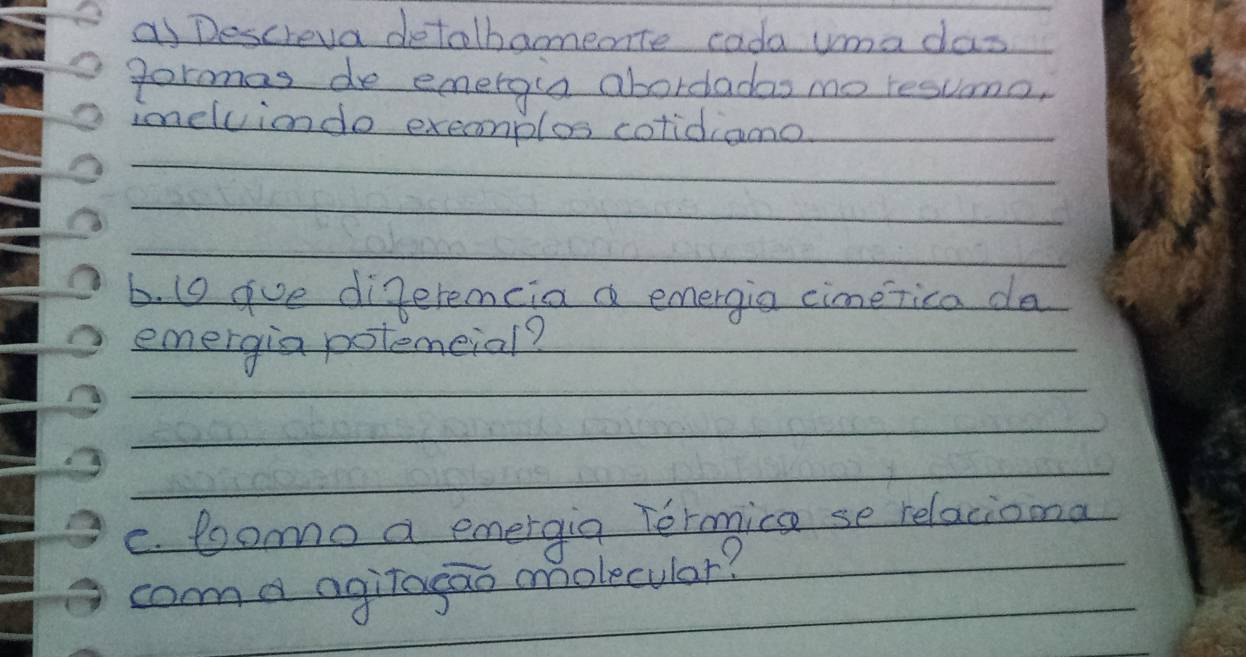 a) Descreva detalhamente cada uma das
formas de energia abordadas no resumo,
incluindo exemplos cotidiano.
b. O que diferencia a energia cinética da
energia potencial?
c. Como a energia Térmica se relaciona
com a agitação molecular?